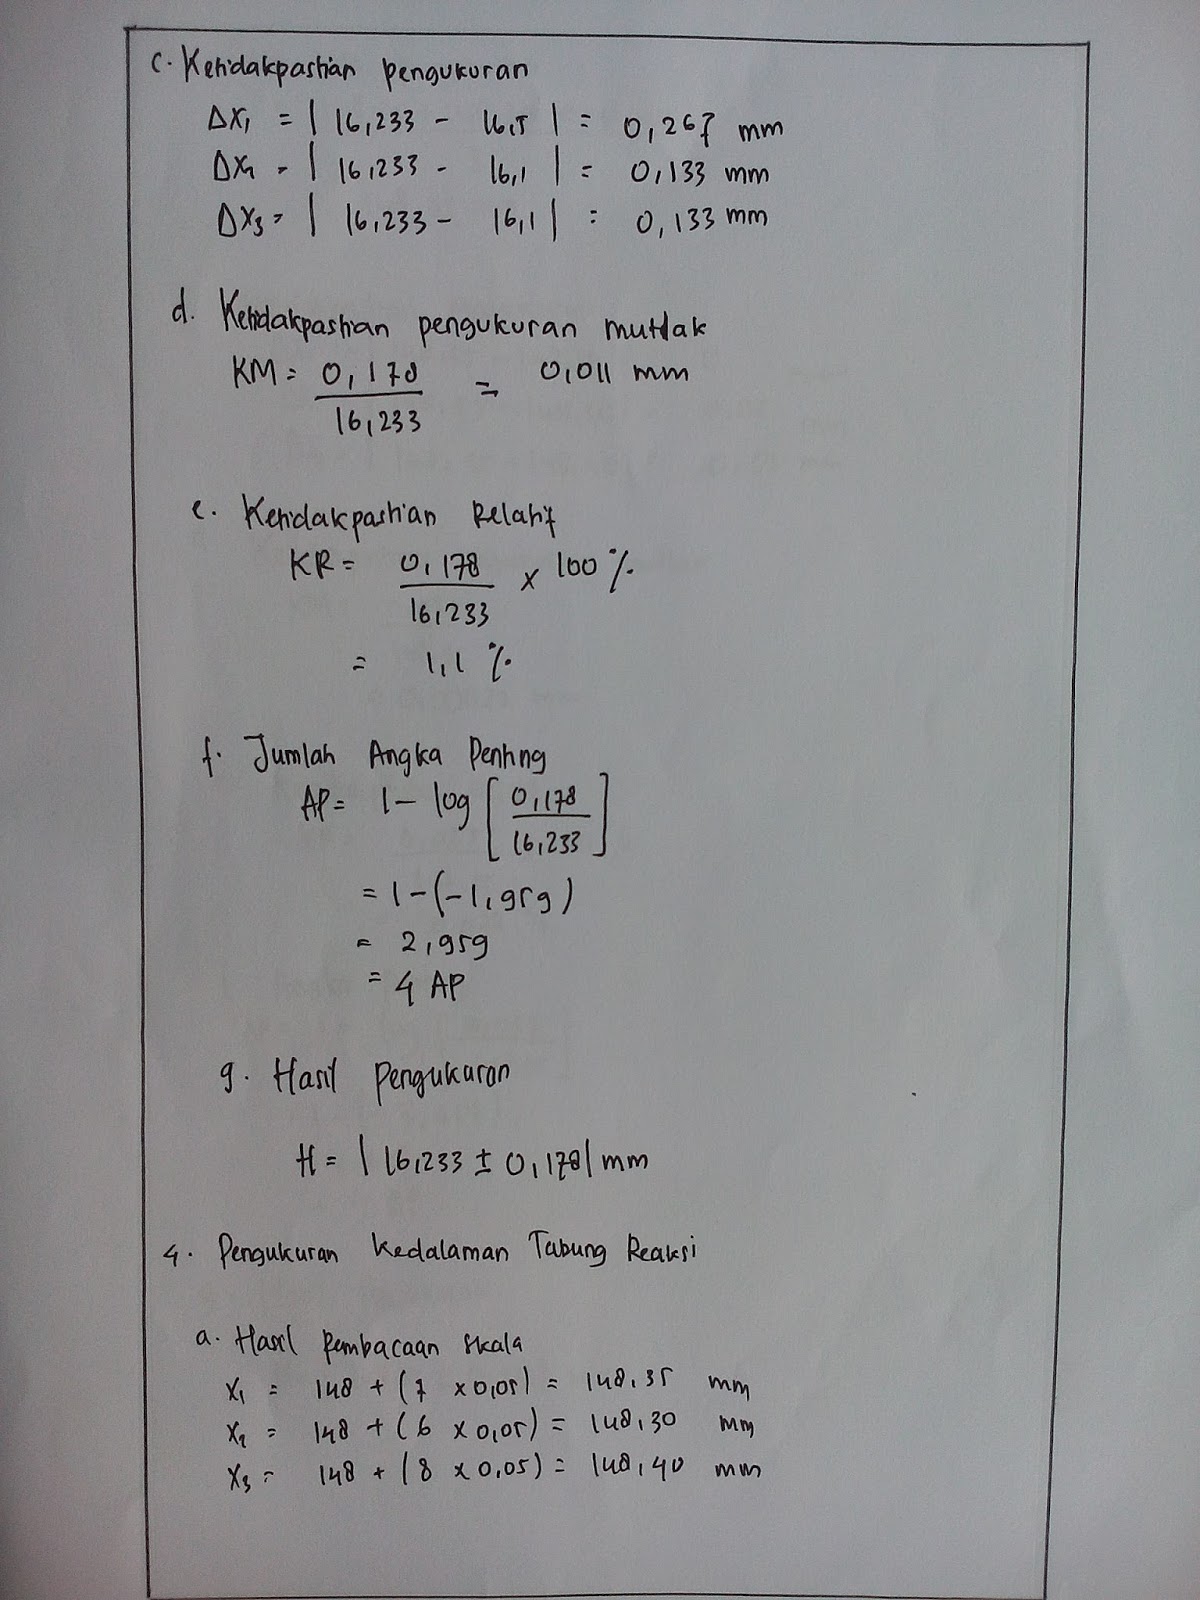 c. Ketidakpastian pengukuran
ΔX₁ = | 16,233 - 16,5 | = 0,267 mm
ΔX₂ = | 16,233 - 16,1 | = 0,133 mm
ΔX₃ = | 16,233 - 16,1 | = 0,133 mm
d. Ketidakpastian pengukuran mutlak
KM = 0,178 / 16,233 = 0,011 mm
e. Ketidakpastian Relatif
KR = 0,178 / 16,233 x 100 %
= 1,1 %
f. Jumlah Angka Penting
AP = 1 - log [ 0,178 / 16,233 ]
= 1 - (-1,959)
= 2,959
= 4 AP
g. Hasil Pengukuran
H = | 16,233 ± 0,178 | mm
4. Pengukuran Kedalaman Tabung Reaksi
a. Hasil Pembacaan skala
X₁ = 148 + (7 x 0,05) = 148,35 mm
X₂ = 148 + (6 x 0,05) = 148,30 mm
X₃ = 148 + (8 x 0,05) = 148,40 mm